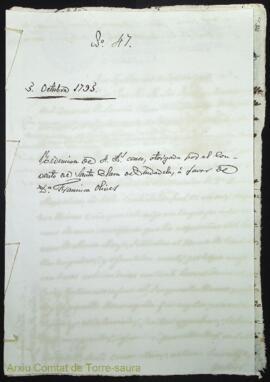 Nº 47.
3. Octubre 1793.
Redencion de censo, otorgada por el Con-
vento de Santa Clara de Ciudadela, á favor de
Dª Francisca Olives
Arxiu Comtat de Torre-saura